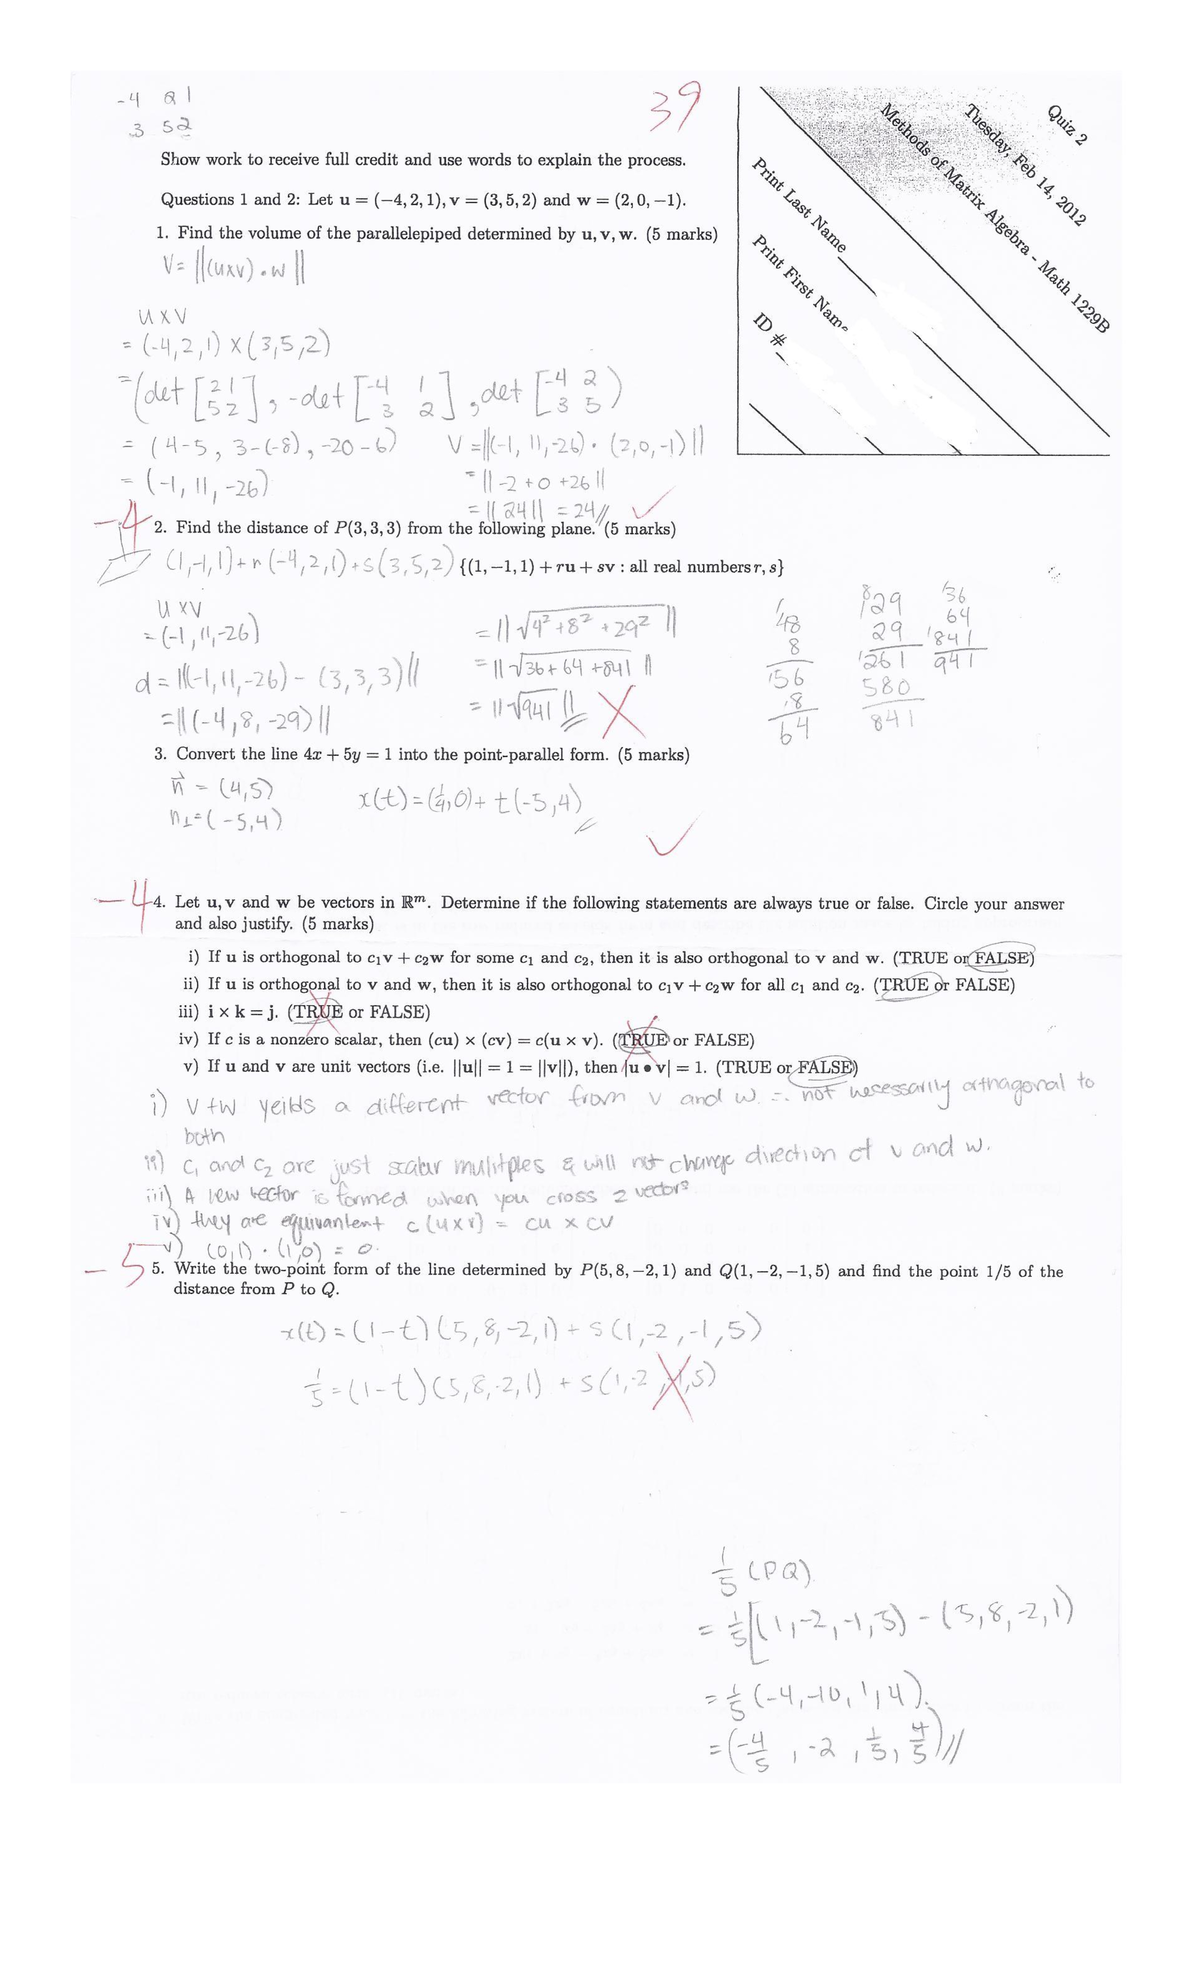 -4 2 1
3 5 2
39
Quiz 2
Tuesday, Feb 14, 2012
Methods of Matrix Algebra - Math 1229B
Print Last Name
Print First Name
ID #
Show work to receive full credit and use words to explain the process.
Questions 1 and 2: Let u = (−4, 2, 1), v = (3, 5, 2) and w = (2, 0, −1).
1. Find the volume of the parallelepiped determined by u, v, w. (5 marks)
V= ||(u×v)•w||
u×v
= (-4,2,1) × (3,5,2)
= (det [2 1 5 2], -det [-4 1 3 2], det [-4 2 3 5])
= (4-5, 3-(-8), -20-6)
= (-1, 11, -26)
V = ||(-1, 11, -26) • (2,0,-1)||
= || -2 + 0 + 26 ||
= || 24 || = 24 //
-4
2. Find the distance of P(3, 3, 3) from the following plane. (5 marks)
(1,-1,1)+r(-4,2,1)+s(3,5,2) {(1, −1, 1) + ru + sv : all real numbers r, s}
u×v
= (-1, 11, -26)
d = ||(-1,11,-26) - (3,3,3)||
= ||(-4, 8, -29)||
= ||√4² + 8² + 29² ||
= ||√36 + 64 + 841 ||
= ||√941 ||
48
8
56
8
64
29
29
261
580
841
36
64
841
941
3. Convert the line 4x + 5y = 1 into the point-parallel form. (5 marks)
n = (4,5)
n⊥=(-5,4)
x(t) = (1/4,0) + t(-5,4)
-4
4. Let u, v and w be vectors in ℝᵐ. Determine if the following statements are always true or false. Circle your answer
and also justify. (5 marks)
i) If u is orthogonal to c₁v + c₂w for some c₁ and c₂, then it is also orthogonal to v and w. (TRUE or FALSE)
ii) If u is orthogonal to v and w, then it is also orthogonal to c₁v + c₂w for all c₁ and c₂. (TRUE or FALSE)
iii) i × k = j. (TRUE or FALSE)
iv) If c is a nonzero scalar, then (cu) × (cv) = c(u × v). (TRUE or FALSE)
v) If u and v are unit vectors (i.e. ||u|| = 1 = ||v||), then |u • v| = 1. (TRUE or FALSE)
i) v+w yeilds a different vector from v and w. ∴ not necessarily orthagonal to
both
ii) c₁ and c₂ are just scalar mulitples & will not change direction of v and w.
iii) A new vector is formed when you cross 2 vectors
iv) they are equivanlent c(u×v) = cu × cv
v) (0,1) • (1,0) = 0.
-5
5. Write the two-point form of the line determined by P(5, 8, −2, 1) and Q(1, −2, −1, 5) and find the point 1/5 of the
distance from P to Q.
x(t) = (1-t)(5,8,-2,1) + s(1,-2,-1,5)
1/5 = (1-t)(5,8,-2,1) + s(1,-2,-1,5)
1/5 (PQ)
= 1/5[(1,-2,-1,5) - (5,8,-2,1)
= 1/5 (-4,-10,1,4).
= (-4/5, -2, 1/5, 4/5)//